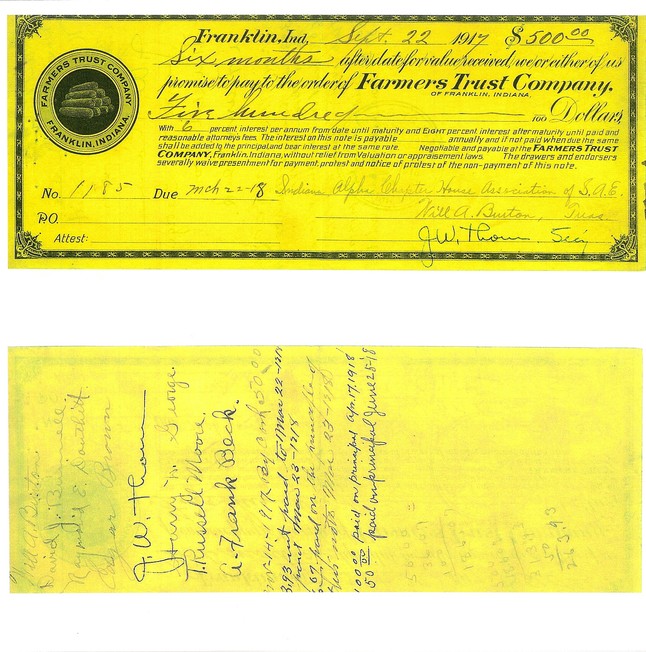 Franklin, Ind. Sept. 22 1917 $500.00
Six months after date for value received, we or either of us
promise to pay to the order of Farmers Trust Company.
OF FRANKLIN, INDIANA.
Five hundred 100 Dollars
With 6 percent interest per annum from date until maturity and EIGHT percent interest after maturity until paid and
reasonable attorneys fees. The interest on this note is payable annually and if not paid when due the same
shall be added to the principal and bear interest at the same rate. Negotiable and payable at the FARMERS TRUST
COMPANY, Franklin, Indiana, without relief from Valuation or appraisement laws. The drawers and endorsers
severally waive presentment for payment, protest and notice of protest of the non-payment of this note.
FARMERS TRUST COMPANY.
FRANKLIN, INDIANA.
No. 1185 Due Mch 22-18 Indiana Alpha Chapter House Association of S.A.E.
P.O. Will A. Burton, Treas
Attest: J. W. Thom Sec'y
Will A. Burton
David J.
E.
J. W. Thom
Harry M. George
T. Russell Moore.
A. Frank Beck.
Nov-14-1917 By cash 50.00
3.93 int paid to Mar 22-1918
paid Mar 23-1918
paid on the principal of
note Mar 23-1918
100.00 paid on principal Apr. 17, 1918
50.00 paid on principal June 25-18
50
263.93